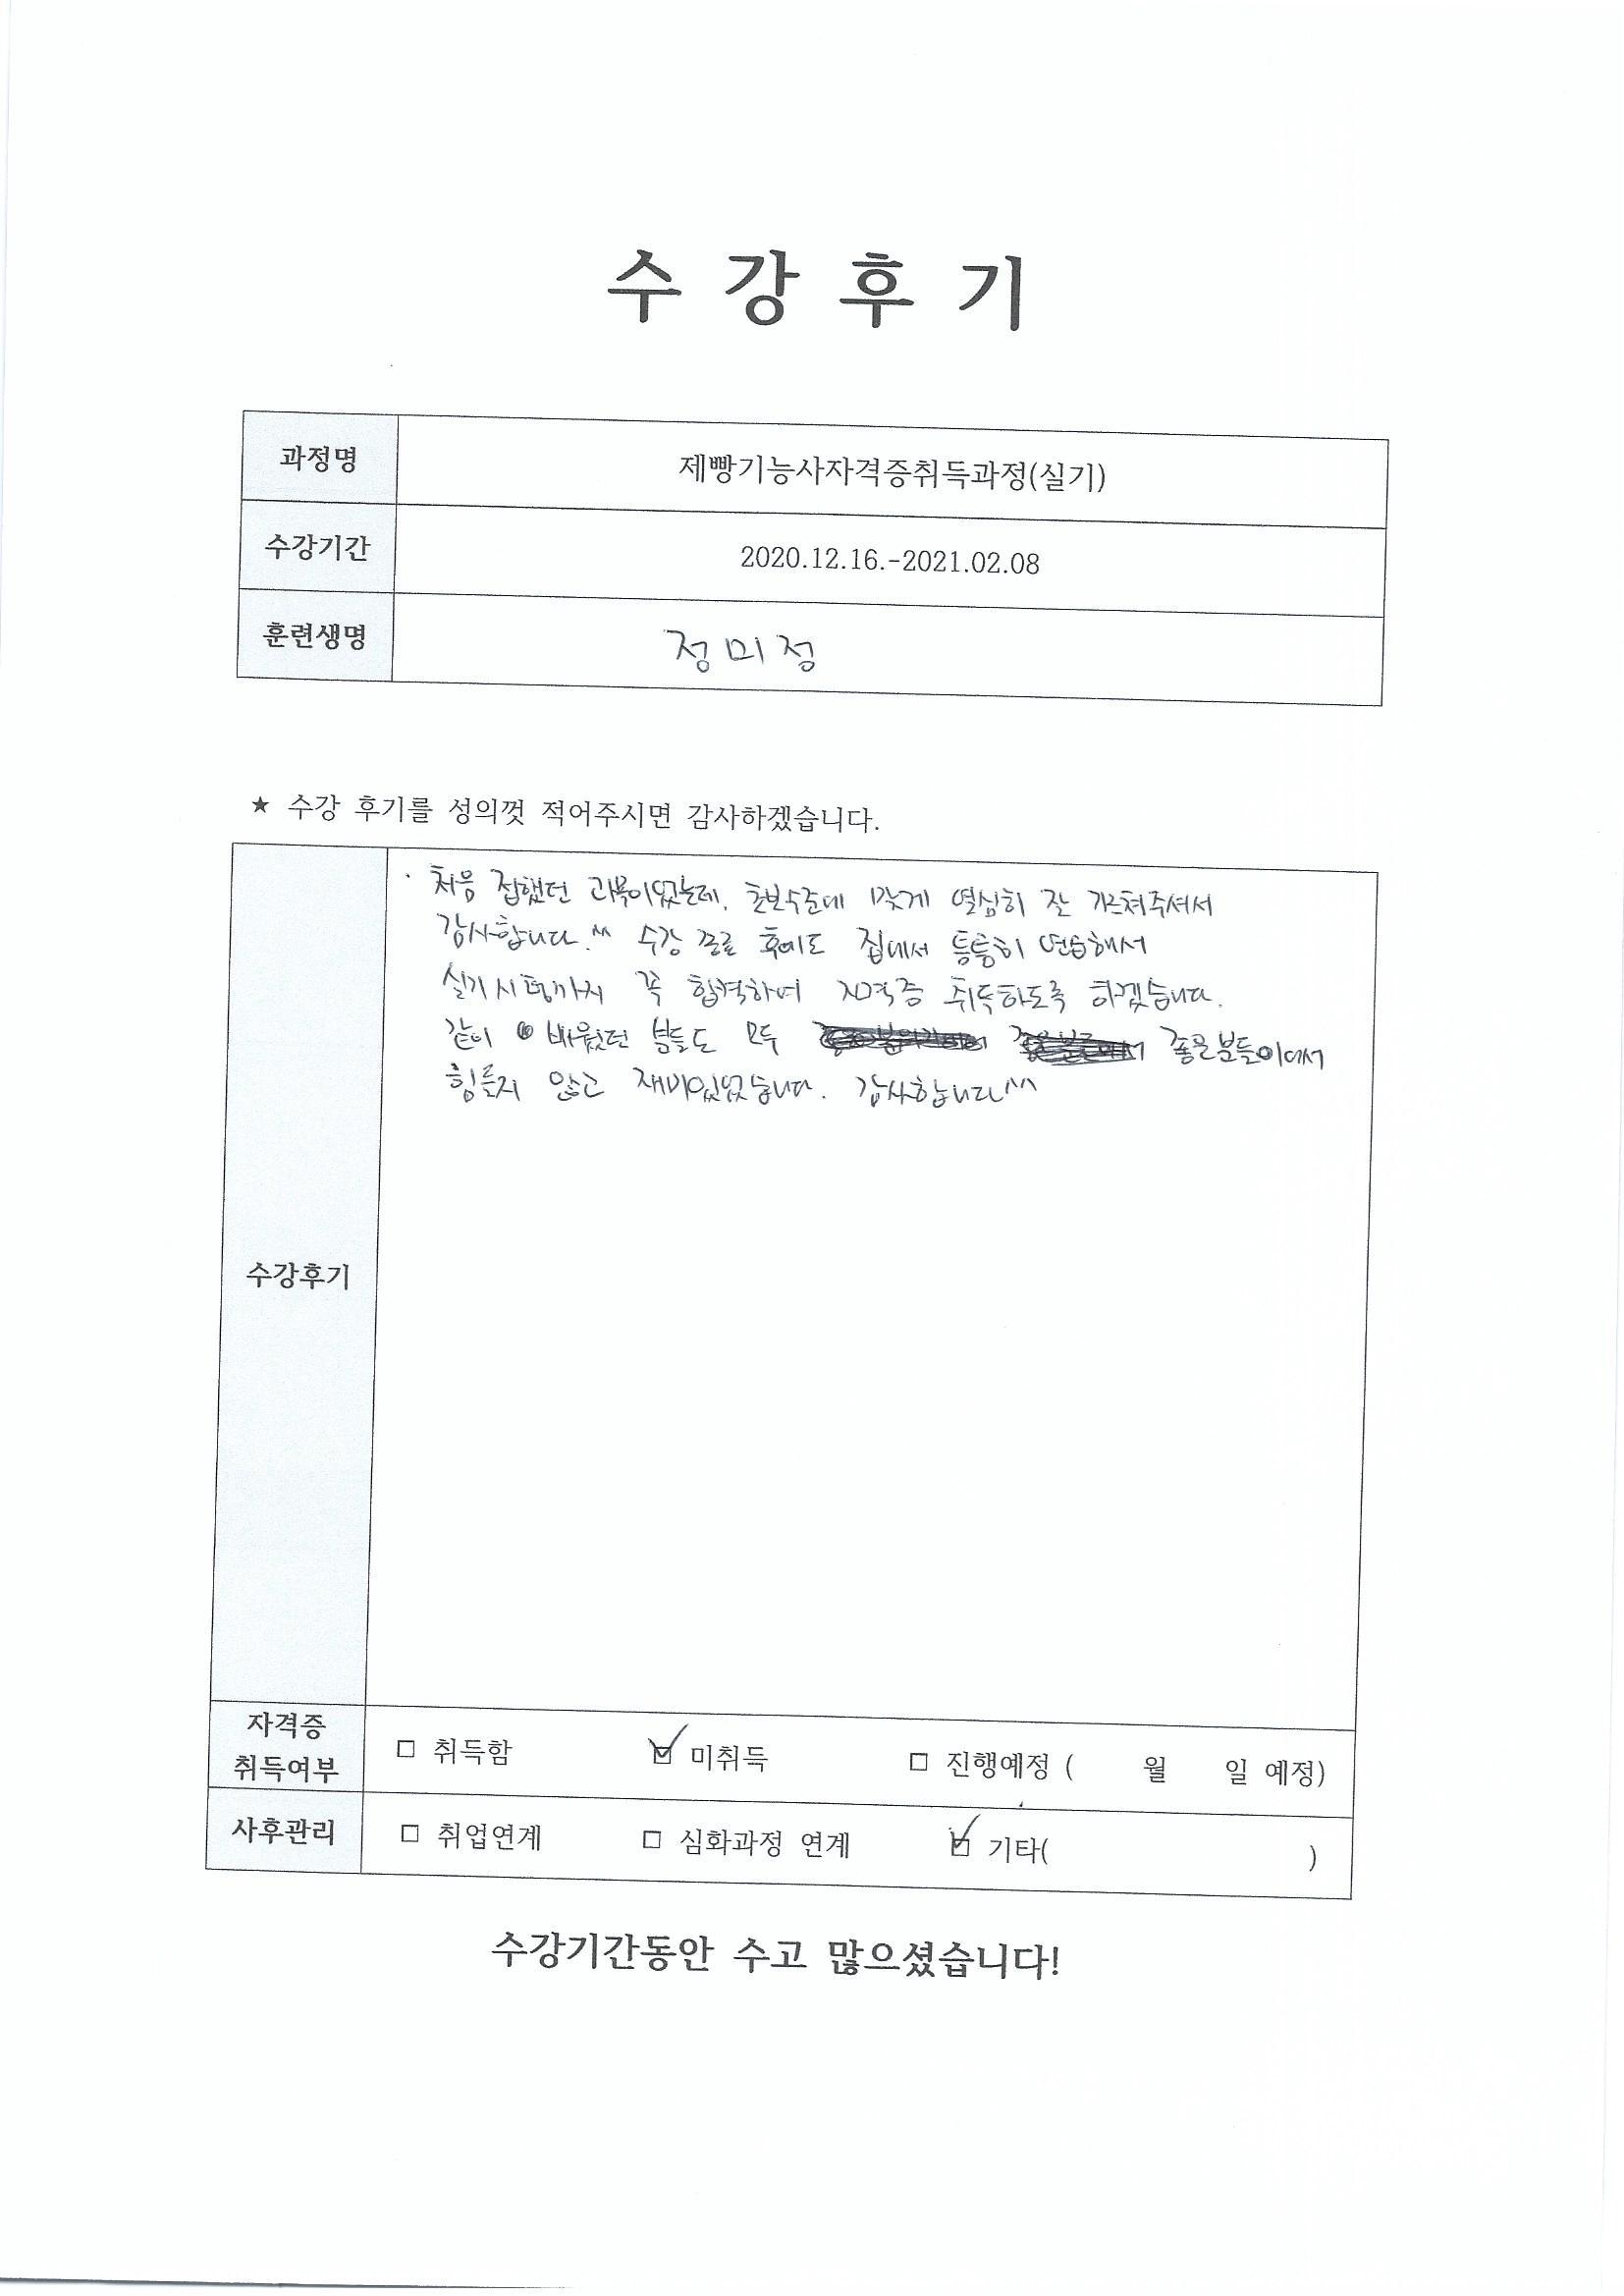 수 강 후 기
과정명 제빵기능사자격증취득과정(실기)
수강기간 2020.12.16.-2021.02.08
훈련생명 정미정
★ 수강 후기를 성의껏 적어주시면 감사하겠습니다.
수강후기
· 처음 접했던 과목이었는데, 초보수준에 맞게 열심히 잘 가르쳐주셔서
감사합니다.^^ 수강 종료 후에도 집에서 틈틈히 연습해서
실기시험까지 꼭 합격하여 자격증 취득하도록 하겠습니다.
같이 배웠던 분들도 모두 좋은분들이여서
힘들지 않고 재미있었습니다. 감사합니다^^
자격증 취득여부 □ 취득함 ☑ 미취득 □ 진행예정 ( 월 일 예정)
사후관리 □ 취업연계 □ 심화과정 연계 ☑ 기타( )
수강기간동안 수고 많으셨습니다!